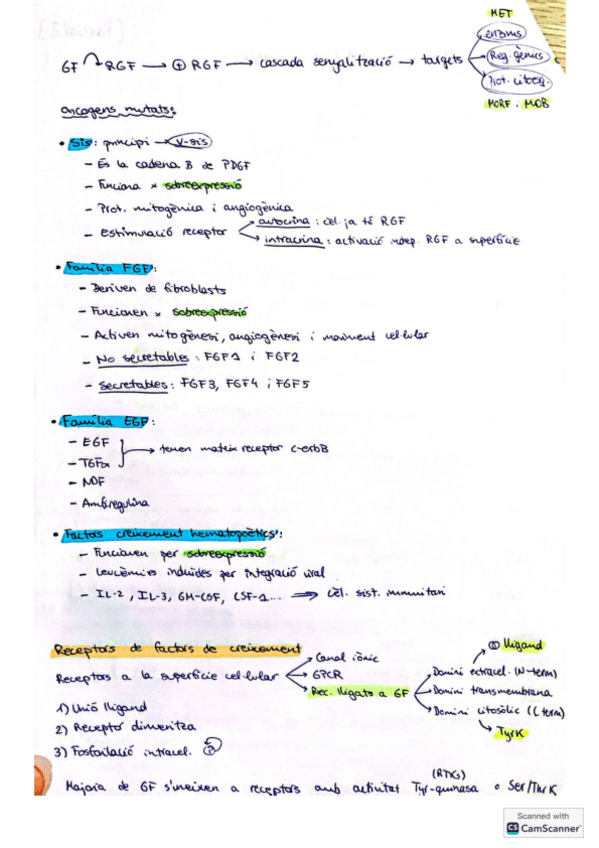 MET
enzims
GF → RGF → ⊕ RGF → cascada senyalització → targets
Reg. gènics
Prot. citosq.
MORF. MOB
oncogens mutats:
• Sis: principi → v-sis
- És la cadena B de PDGF
- Funciona x sobreexpressió
- Prot. mitogènica i angiogènica
- Estimulació receptor
autocrina: cèl. ja té RGF
intracrina: activació indep. RGF a superfície
• Família FGF:
- Deriven de fibroblasts
- Funcionen x sobreexpressió
- Activen mitogènesi, angiogènesi i moviment cel·lular
- No secretables: FGF1 i FGF2
- Secretables: FGF3, FGF4 i FGF5
• Família EGF:
- EGF
- TGFα
→ tenen mateix receptor c-erbB
- NDF
- Amfiregulina
• Factors creixement hematopoètics:
- Funcionen per sobreexpressió
- Leucèmies induïdes per integració viral
- IL-2, IL-3, GM-CSF, CSF-1.... ⇒ Cèl. sist. immunitari
Receptors de factors de creixement
Receptors a la superfície cel·lular
Canal iònic
GPCR
Rec. lligats a GF
⊕ lligand
Domini extracel. (N-term)
Domini transmembrana
Domini citosòlic (C term)
TyrK
1) Unió lligand
2) Receptor dimeritza
3) Fosforilació intracel. P
(RTKs)
Majoria de GF s'uneixen a receptors amb activitat Tyr-quinasa o Ser/ThrK
Scanned with
CS CamScanner